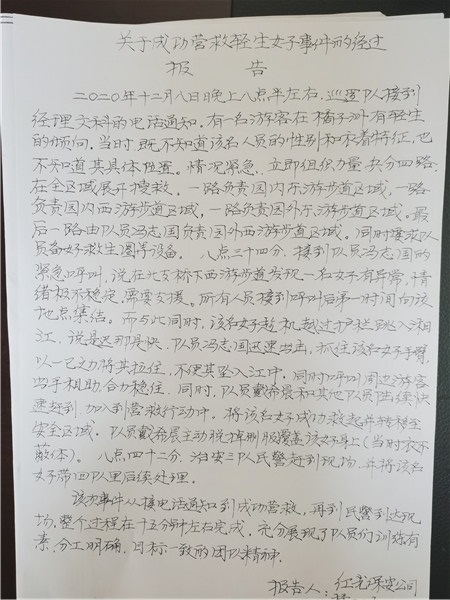 关于成功营救轻生女子事件的经过
报 告
二〇二〇年十二月八日晚上八点半左右，巡逻队接到
经理文科的电话通知，有一名游客在橘子洲有轻生
的倾向。当时既不知道该名人员的性别和衣着特征，也
不知道其具体位置。情况紧急，立即组织力量共分四路
在全区域展开搜救。一路负责园内东游步道区域，一路
负责园内西游步道区域，一路负责园外东游步道区域。最
后一路由队员冯志国负责园外西游步道区域。同时要求队
员备好救生圈等设备。八点三十四分，接到队员冯志国的
紧急呼叫，说在北支桥下西游步道发现一名女子有异常，情
绪极不稳定，需要支援。所有人员接到呼叫后第一时间向该
地点集结。而与此同时，该名女子趁机越过护栏跳入湘
江，说是迟那是快，队员冯志国迅速出击，抓住该名女子手臂
以一己之力将其拉住，不使其坠入江中。同时呼叫周边游客
出手相助，合力稳住。同时，队员戴希晨和其他队员陆续快
速赶到，加入到营救行动中。将该名女子成功救起并转移至
安全区域。队员戴希晨主动脱掉制服覆盖该女身上（当时衣不
蔽体）。八点四十二分，治安三队民警赶到现场，并将该名
女子带回队里后续处理。
该次事件从接电话通知到成功营救，再到民警到达现
场，整个过程在十五分钟左右完成，充分展现了队员们训练有
素、分工明确、目标一致的团队精神。
报告人：红光保安公司